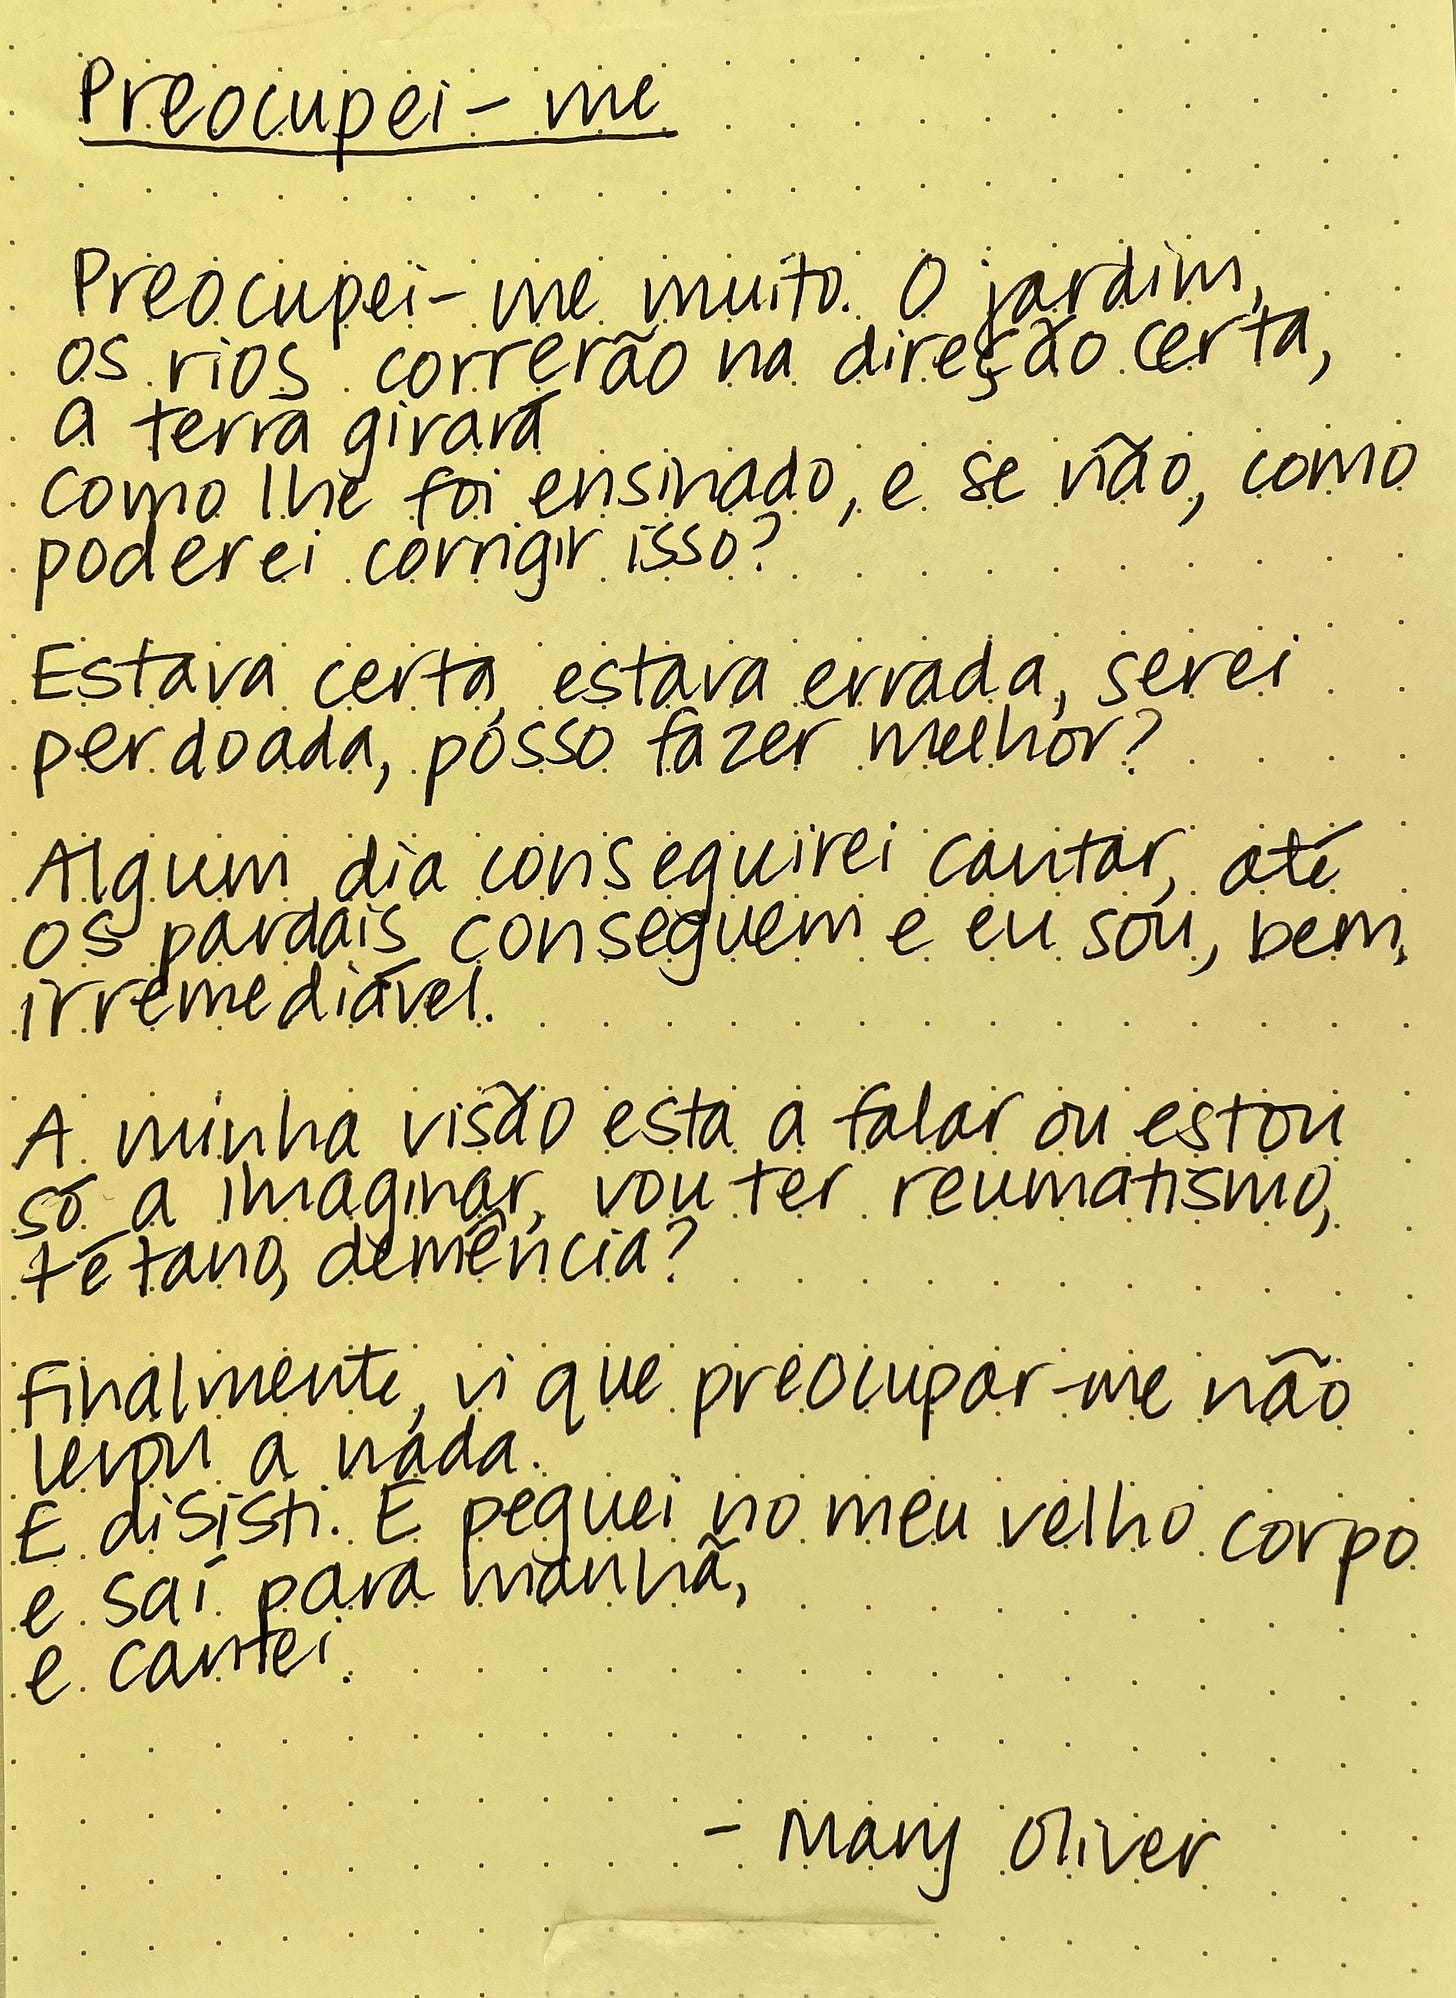 Preocupei-me
Preocupei-me muito. O jardim,
os rios correrão na direção certa,
a terra girará
como lhe foi ensinado, e se não, como
poderei corrigir isso?
Estava certa, estava errada, serei
perdoada, posso fazer melhor?
Algum dia conseguirei cantar, até
os pardais conseguem e eu sou, bem,
irremediável.
A minha visão está a falar ou estou
só a imaginar, vou ter reumatismo,
tétano, demência?
Finalmente, vi que preocupar-me não
levou a nada.
E disisti. E peguei no meu velho corpo
e saí para manhã,
e cantei.
- Mary Oliver